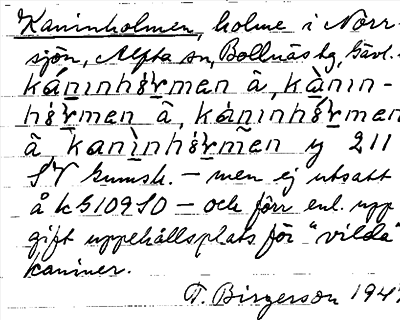 Kaninholmen, holme i Norr-
sjön, Alfta sn, Bollnäs hg, Gävl.
kánịnhó̤ḷmen â, kànin-
hó̤ḷmen â, káninhó̤ḷmen
â kanìnhó̤ḷmen y 211
SV kumsk. – men ej utsatt
å k G109 SO – och förr enl. upp
gift uppehållsplats för "vilda"
kaniner.
T. Birgerson 194